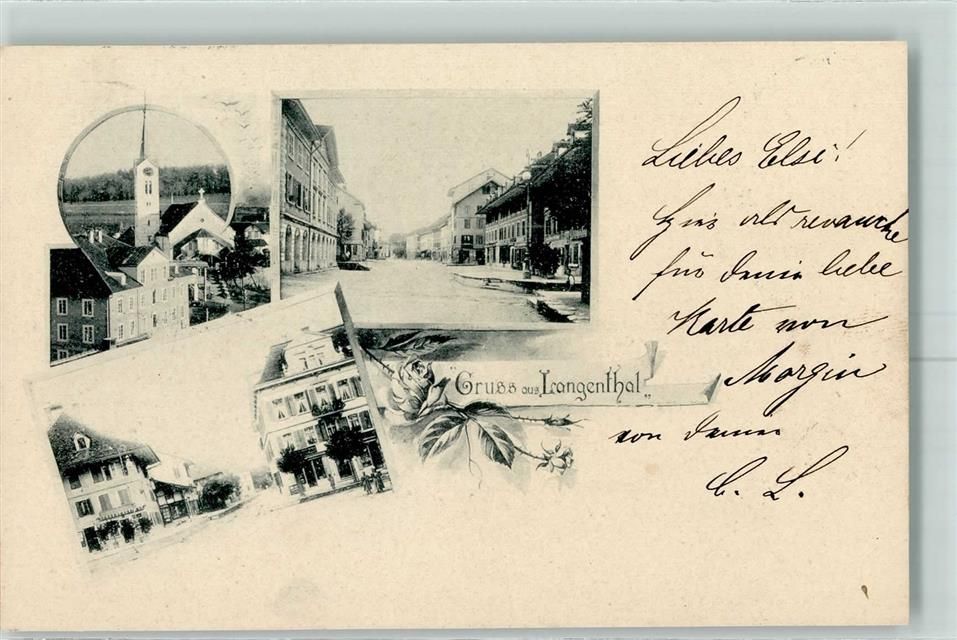 „Gruss aus Langenthal„
Liebes Elsi!
Hier als revanche
für deine liebe
Karte von
Morgin
von deiner
C. L.